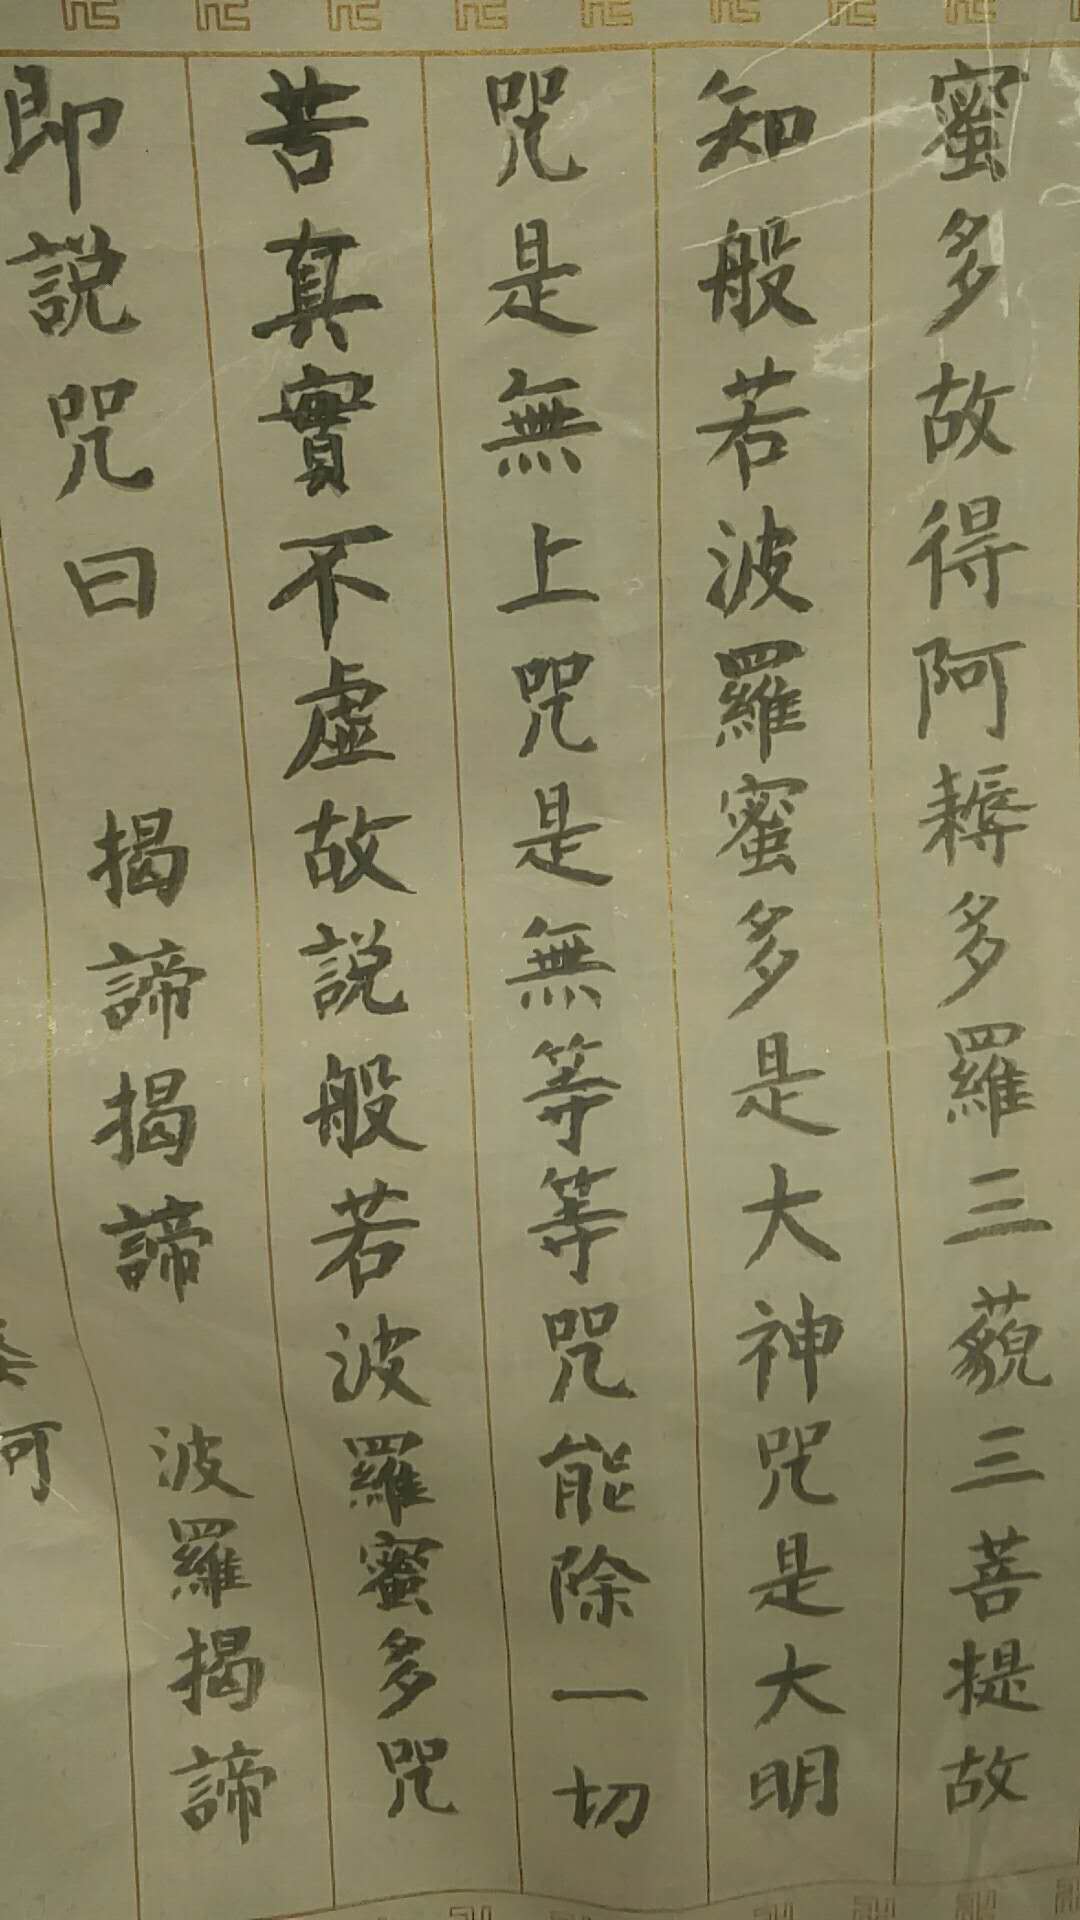 蜜多故得阿耨多羅三藐三菩提故
知般若波羅蜜多是大神咒是大明
咒是無上咒是無等等咒能除一切
苦真實不虛故說般若波羅蜜多咒
即說咒曰 揭諦揭諦 波羅揭諦
婆訶